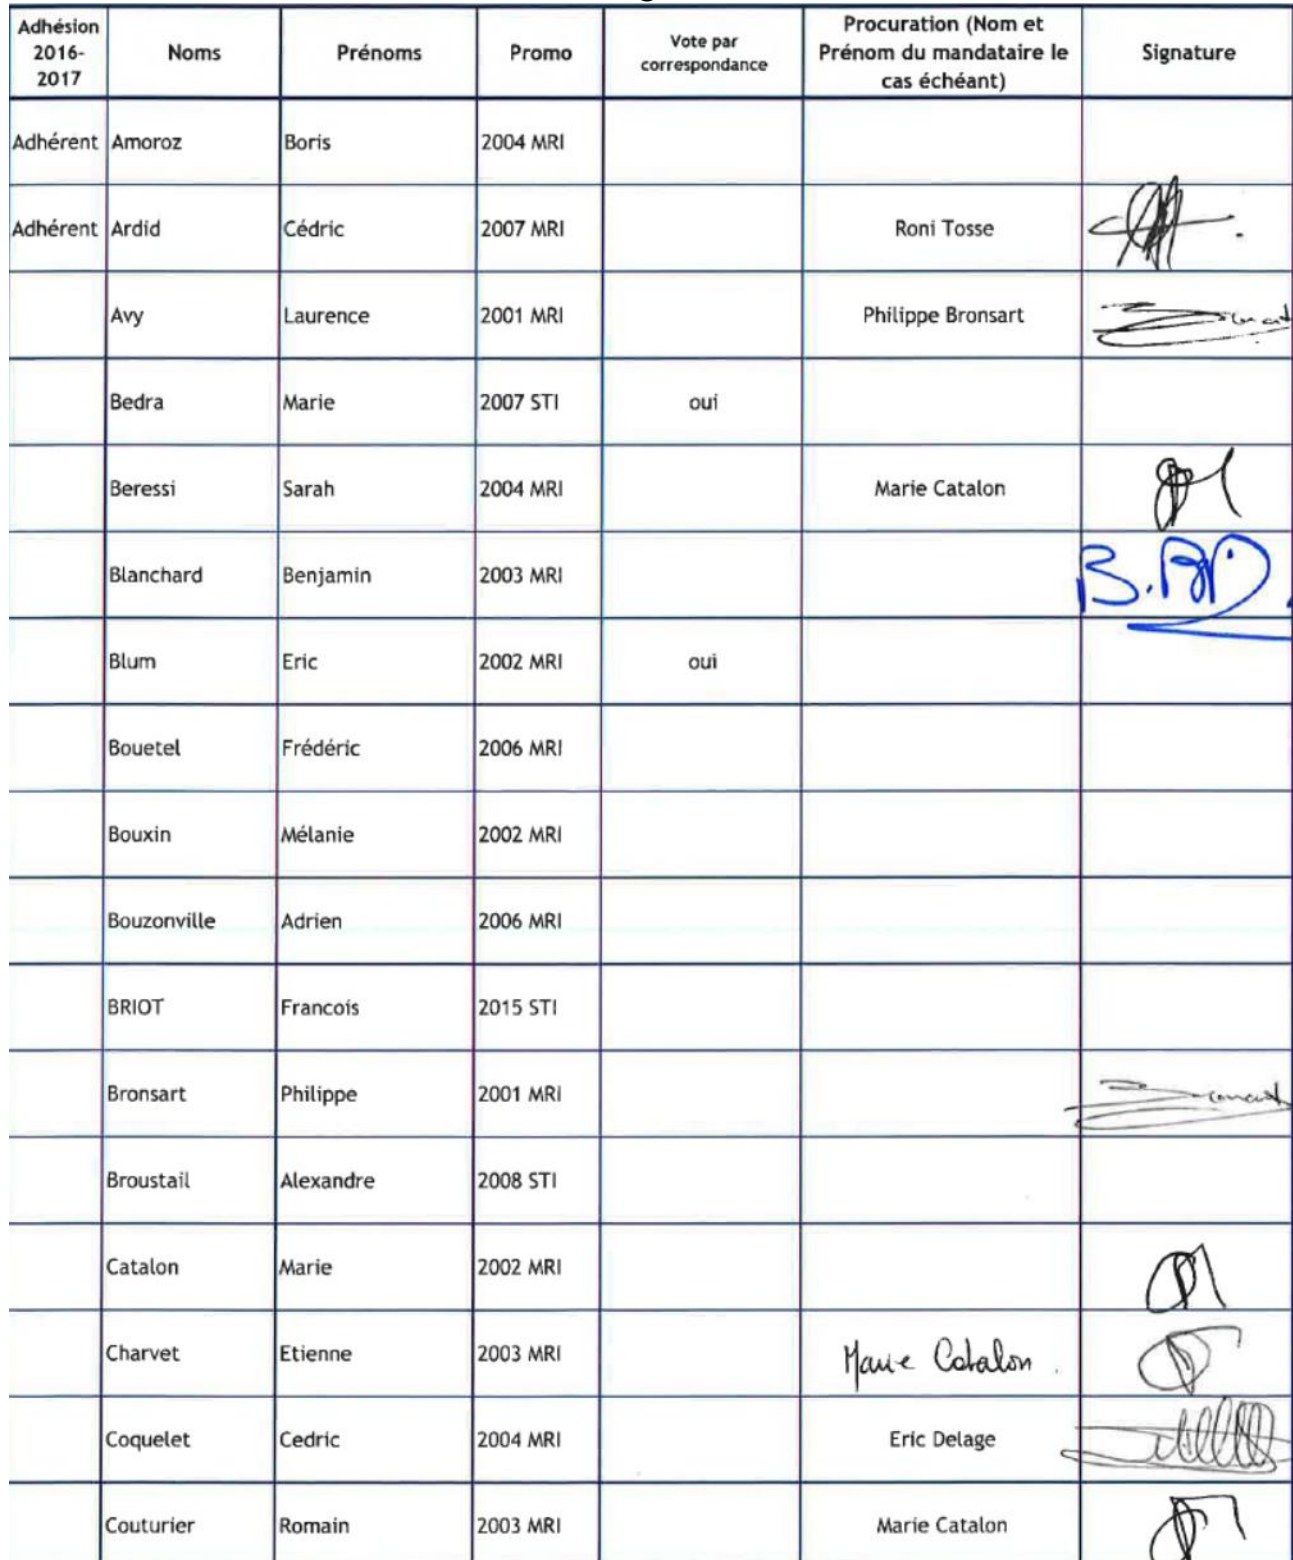 Adhésion 2016-2017 Noms Prénoms Promo Vote par correspondance Procuration (Nom et Prénom du mandataire le cas échéant) Signature
Adhérent Amoroz Boris 2004 MRI
Adhérent Ardid Cédric 2007 MRI Roni Tosse
Avy Laurence 2001 MRI Philippe Bronsart
Bedra Marie 2007 STI oui
Beressi Sarah 2004 MRI Marie Catalon
Blanchard Benjamin 2003 MRI
Blum Eric 2002 MRI oui
Bouetel Frédéric 2006 MRI
Bouxin Mélanie 2002 MRI
Bouzonville Adrien 2006 MRI
BRIOT Francois 2015 STI
Bronsart Philippe 2001 MRI
Broustail Alexandre 2008 STI
Catalon Marie 2002 MRI
Charvet Etienne 2003 MRI Marie Catalon.
Coquelet Cedric 2004 MRI Eric Delage
Couturier Romain 2003 MRI Marie Catalon